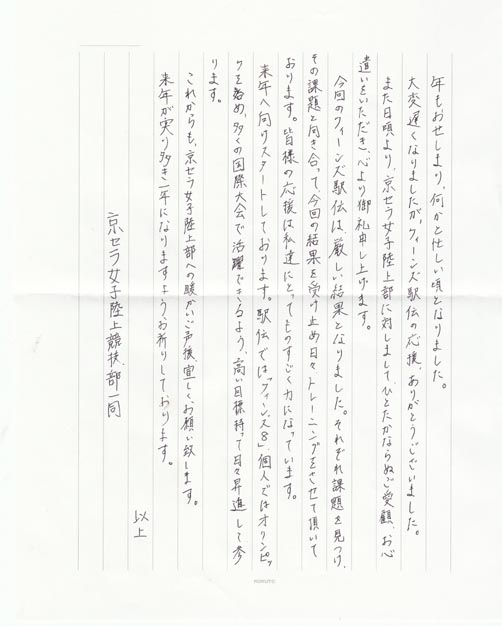 年もおせしまり、何かと忙しい頃となりました。
大変遅くなりましたが、クィーンズ駅伝の応援、ありがとうございました。
また日頃より、京セラ女子陸上部に対しまして、ひとたかならぬご愛顧、お心
遣いをいただき、心より御礼申し上げます。
今回のクィーンズ駅伝は、厳しい結果となりました。それぞれ課題を見つけ、
その課題と向き合って、今回の結果を受け止め日々トレーニングをさせて頂いて
おります。皆様の応援は私達にとってものすごく力になっています。
来年へ向けスタートしております。駅伝では“クィーンズ8”、個人ではオリンピッ
クを始め、多くの国際大会で活躍できるよう、高い目標持って日々昇進して参
ります。
これからも、京セラ女子陸上部への暖かいご声援、宜しくお願い致します。
来年が実り多き一年になりますようお祈りしております。
以上
京セラ女子陸上競技部一同
KOKUYO